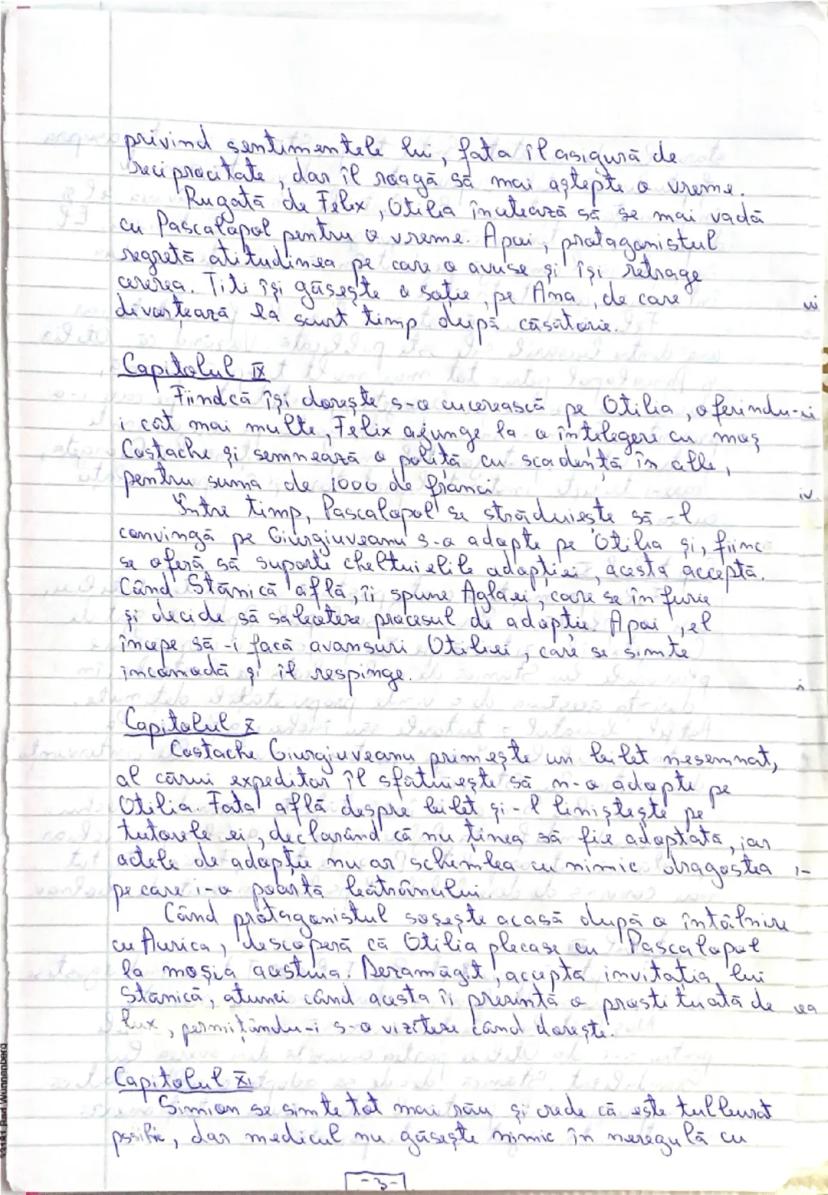 privind sentimentele lui, fata îl asigură de
reciprocitate, dar îl roagă să mai aștepte o vreme.
Rugată de Felix, Otilia încetează să se mai vadă
cu Pascalopol pentru o vreme. Apoi, protagonistul
regretă atitudinea pe care o avuse și își retrage
cererea. Titi își găsește o soție, pe Ana, de care
divorțează la scurt timp după căsătorie.
Capitolul IX
Fiindcă își dorește s-o cucerească pe Otilia, oferindu-i
i cât mai multe, Felix ajunge la o înțelegere cu moș
Costache și semnează o poliță cu scadență în alb,
pentru suma de 1000 de franci
Între timp, Pascalopol se străduiește să-l
convingă pe Giurgiuveanu s-o adopte pe Otilia și, fiincă
se oferă să suporte cheltuielile adopției, acesta acceptă.
Când Stănică află, îi spune Aglaei, care se înfurie
și decide să saboteze procesul de adopție. Apoi, el
începe să-i facă avansuri Otiliei, care se simte
incomodă și îl respinge.
Capitolul X
Costache Giurgiuveanu primește un bilet nesemnat,
al cărui expeditor îl sfătuiește să n-o adopte pe
Otilia. Fata află despre bilet și-l liniștește pe
tutorele ei, declarând că nu ținea să fie adoptată, iar
actele de adopție nu ar schimba cu nimic dragostea
pe care i-o poartă bătrânului.
Când protagonistul sosește acasă după o întâlnire
cu Aurica, descoperă că Otilia plecase cu Pascalopol
la moșia acestuia. Dezamăgit, acceptă invitația lui
Stănică, atunci când acesta îi prezintă o prostituată de
lux, permițându-i s-o viziteze când dorește.
Capitolul XI
Simion se simte tot mai rău și crede că este tulburat
psihic, dar medicul nu găsește nimic în neregulă cu
-3-